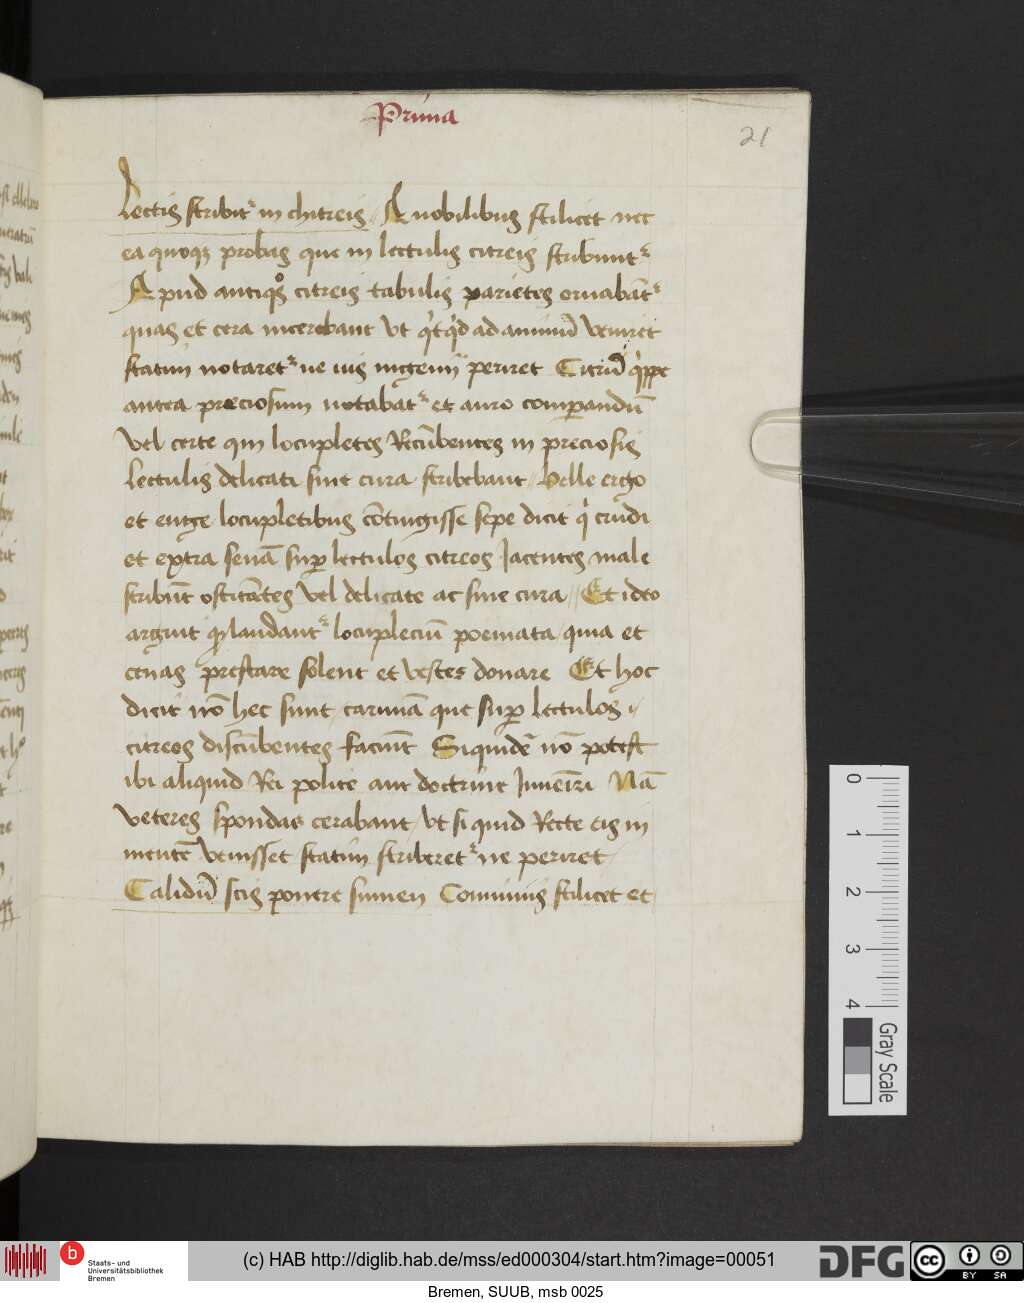 Prima
21
Lectis scribitr in chitreis A nobilibus scilicet nec
ea quoqz probas que in lectulis citreis scribuntr
Apud antiqos citreis tabulis parietes ornabātr
quas et cera incerebant ut qitqid ad animū veniret
statim notaretr ne uis ingenij periret Citrū qippe
antea preciosum notabatr et auro comparandū
Vel certe qm locupletes Recūbentes in preciosis
Lectulis delicati sine cura scribebant Belle ergo
et euge locupletibus cōtingisse sepe dicit qi crudi
et extra senā super lectulos citreos Jacentes male
scribūt oscitātes vel delicate ac sine cura Et ideo
arguit qz laudantr locupleciū poemata quia et
cenas prestare solent et vestes donare Et hoc
dicit nō hec sunt carmīa que super lectulos
citreos discūbentes faciūt Siquidē nō potest
ibi aliquid Rei polite aut doctrine Jnuenīri Nā
veteres spondas cerabant ut si quid Recte eis in
mentē venisset statim scriberetr ne periret
Calidū scis ponere sumen Conuiuis scilicet et
0 1 2 3 4
Gray Scale
b
Staats- und
Universitätsbibliothek
Bremen
(c) HAB http://diglib.hab.de/mss/ed000304/start.htm?image=00051
DFG
cc BY SA
Bremen, SUUB, msb 0025